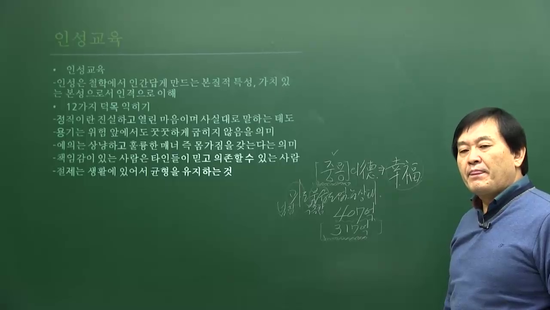 인성교육
• 인성교육
-인성은 철학에서 인간답게 만드는 본질적 특성, 가치 있
는 본성으로서 인격으로 이해
• 12가지 덕목 익히기
-정직이란 진실하고 열린 마음이며 사실대로 말하는 태도
-용기는 위험 앞에서도 꿋꿋하게 굽히지 않음을 의미
-예의는 상냥하고 훌륭한 매너 즉 몸가짐을 갖는다는 의미
-책임감이 있는 사람은 타인들이 믿고 의존할 수 있는 사람
-절제는 생활에 있어서 균형을 유지하는 것
[중용] 德 幸福
407억
[315억]